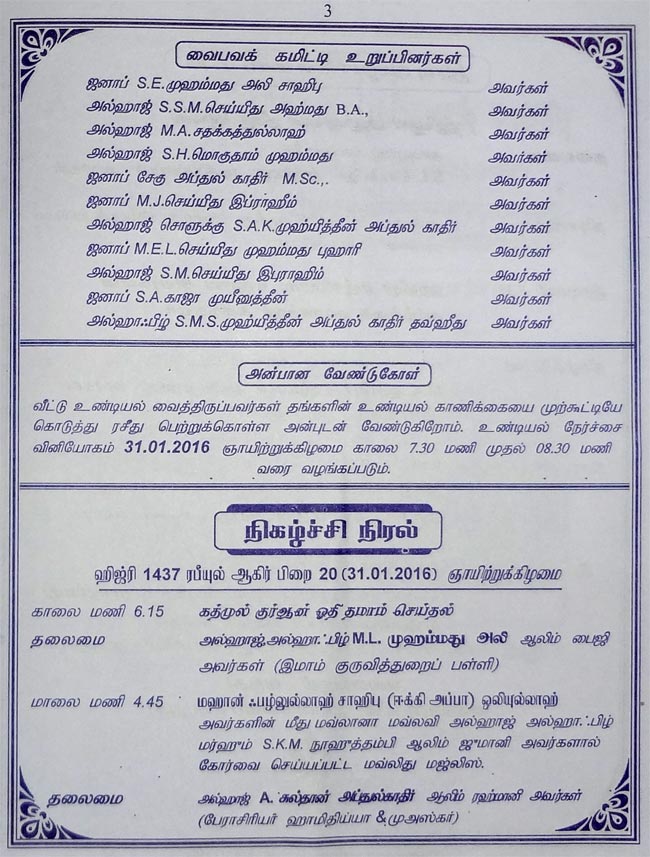 3
வைபவக் கமிட்டி உறுப்பினர்கள்
ஜனாப் S.E.முஹம்மது அலி சாஹிபு அவர்கள்
அல்ஹாஜ் S.S.M.செய்யிது அஹ்மது B.A., அவர்கள்
அல்ஹாஜ் M.A.சதக்கத்துல்லாஹ் அவர்கள்
அல்ஹாஜ் S.H.மொகுதாம் முஹம்மது அவர்கள்
ஜனாப் சேகு அப்துல் காதிர் M.Sc.,. அவர்கள்
ஜனாப் M.J.செய்யிது இப்ராஹீம் அவர்கள்
அல்ஹாஜ் சொளுக்கு S.A.K.முஹ்யித்தீன் அப்துல் காதிர் அவர்கள்
ஜனாப் M.E.L.செய்யிது முஹம்மது புஹாரி அவர்கள்
அல்ஹாஜ் S.M.செய்யிது இபுராஹிம் அவர்கள்
ஜனாப் S.A.காஜா முயீனுத்தீன் அவர்கள்
அல்ஹாஃபிழ் S.M.S.முஹ்யித்தீன் அப்துல் காதிர் தவ்ஹீது அவர்கள்
அன்பான வேண்டுகோள்
வீட்டு உண்டியல் வைத்திருப்பவர்கள் தங்களின் உண்டியல் காணிக்கையை முற்கூட்டியே
கொடுத்து ரசீது பெற்றுக்கொள்ள அன்புடன் வேண்டுகிறோம். உண்டியல் நேர்ச்சை
வினியோகம் 31.01.2016 ஞாயிற்றுக்கிழமை காலை 7.30 மணி முதல் 08.30 மணி
வரை வழங்கப்படும்.
நிகழ்ச்சி நிரல்
ஹிஜ்ரி 1437 ரபீயுல் ஆகிர் பிறை 20 (31.01.2016) ஞாயிற்றுக்கிழமை
காலை மணி 6.15 கத்முல் குர்ஆன் ஓதி தமாம் செய்தல்
தலைமை அல்ஹாஜ்,அல்ஹாஃபிழ் M.L. முஹம்மது அலி ஆலிம் பைஜி
அவர்கள் (இமாம் குருவித்துறைப் பள்ளி)
மாலை மணி 4.45 மஹான் ஃபழ்லுல்லாஹ் சாஹிபு (ஈக்கி அப்பா) ஒலியுல்லாஹ்
அவர்களின் மீது மவ்லானா மவ்லவி அல்ஹாஜ் அல்ஹாஃபிழ்
மர்ஹும் S.K.M. நூஹுத்தம்பி ஆலிம் ஜுமானி அவர்களால்
கோர்வை செய்யப்பட்ட மவ்லிது மஜ்லிஸ்.
தலைமை அல்ஹாஜ் A. சுல்தான் அப்துல்காதிர் ஆலிம் ரஹ்மானி அவர்கள்
(பேராசிரியர் ஹாமிதிய்யா & முஅஸ்கர்)